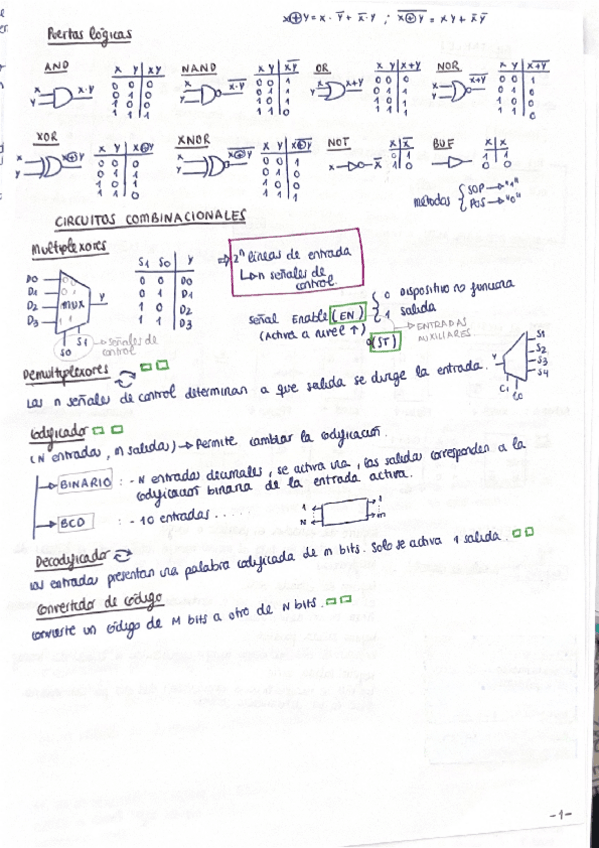 x⊕y = x·ȳ + x̄·y ; \overline{x⊕y} = xy + x̄ȳ
Puertas lógicas
AND NAND OR NOR
x y x·y
x y xy
0 0 0
0 1 0
1 0 0
1 1 1
x y \overline{x·y}
x y \overline{xy}
0 0 1
0 1 1
1 0 1
1 1 0
x y x+y
x y x+y
0 0 0
0 1 1
1 0 1
1 1 1
x y \overline{x+y}
x y \overline{x+y}
0 0 1
0 1 0
1 0 0
1 1 0
XOR XNOR NOT BUF
x y x⊕y
x y x⊕y
0 0 0
0 1 1
1 0 1
1 1 0
x y \overline{x⊕y}
x y \overline{x⊕y}
0 0 1
0 1 0
1 0 0
1 1 1
x x̄
x x̄
0 1
1 0
x x
0 0
1 1
métodos { SOP → "1"
POS → "0"
CIRCUITOS COMBINACIONALES
Multiplexores
D0 D1 D2 D3 mux y
S0 S1 → señales de control
S1 S0 y
0 0 D0
0 1 D1
1 0 D2
1 1 D3
⇒ 2ⁿ líneas de entrada
↳ n señales de control.
Señal Enable (EN) { 0 dispositivo no funciona
1 salida
(Activa a nivel ↑)
o (ST)
→ ENTRADAS AUXILIARES
Demultiplexores
y S1 S2 S3 S4
C1 C0
Las n señales de control determinan a que salida se dirige la entrada.
Codificador
(N entradas, m salidas) → Permite cambiar la codificación.
→ BINARIO : - N entradas decimales, se activa una, las salidas corresponden a la
codificación binaria de la entrada activa.
→ BCD : - 10 entradas ......
1 N 1 m
Decodificador
Las entradas presentan una palabra codificada de m bits. Solo se activa 1 salida.
Convertidor de código
Convierte un código de M bits a otro de N bits.
-1-